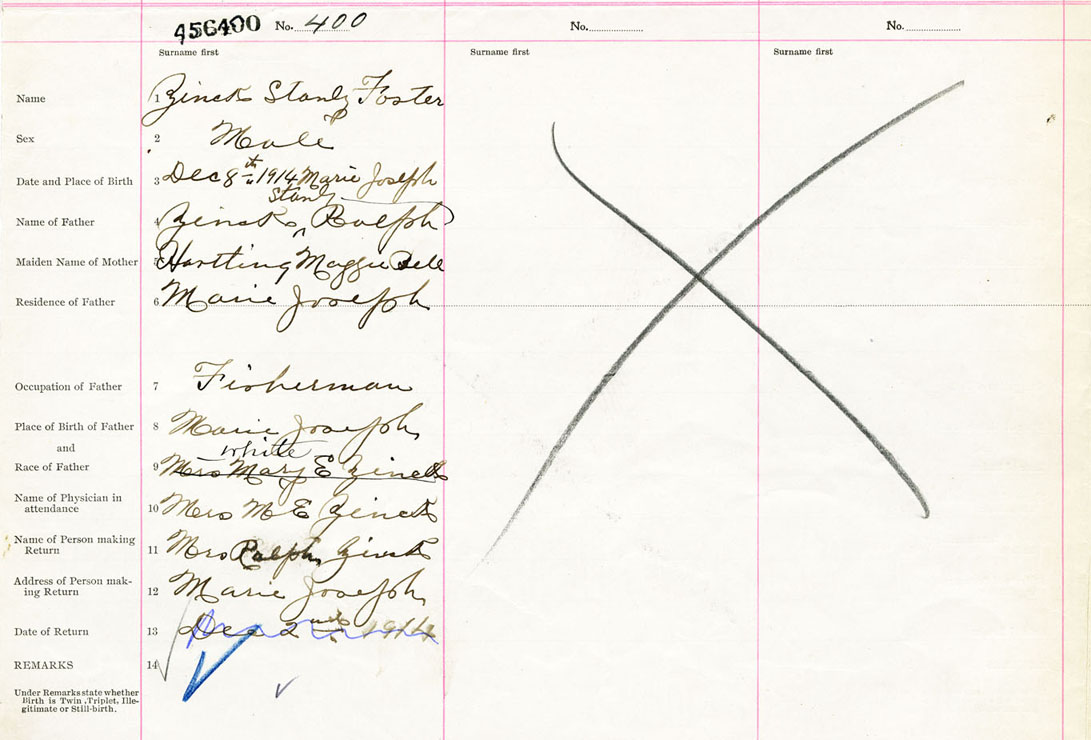 456400 No. 400 No. No.
Surname first Surname first Surname first
Name 1 Zinck Stanly Foster
Sex 2 Male
Date and Place of Birth 3 Dec 8th 1914 Marie Joseph
Stanly
Name of Father 4 Zinck, Ralph
Maiden Name of Mother 5 Hartling Maggie Bell
Residence of Father 6 Marie Joseph
Occupation of Father 7 Fisherman
Place of Birth of Father 8 Marie Joseph
and
white
Race of Father 9 Mrs Mary E Zinck
Name of Physician in
attendance 10 Mrs M E Zinck
Name of Person making
Return 11 Mrs Ralph Zinck
Address of Person mak-
ing Return 12 Marie Joseph
Date of Return 13 Dec 2
REMARKS 14
Under Remarks state whether
Birth is Twin, Triplet, Ille-
gitimate or Still-birth.